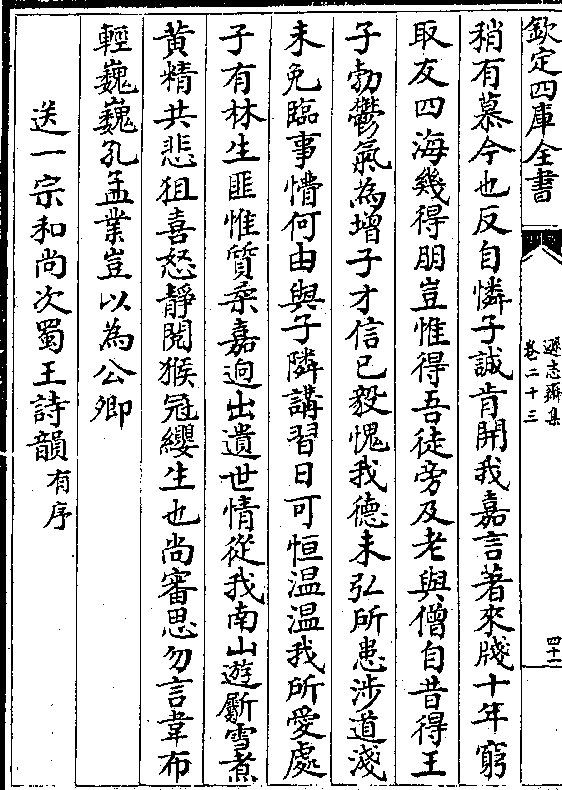 欽定四庫全書
遜志齋集
卷二十三
四十一
稍有慕今也反自憐子誠肯開我嘉言著來牋十年窮
取友四海幾得朋豈惟得吾徒旁及老與僧自昔得王
子勃鬱氣為增子才信已毅愧我德未弘所患涉道淺
未免臨事懵何由與子隣講習日可恒温温我所愛處
子有林生匪惟質柔嘉迥出遺世情從我南山遊斸雪煮
黄精共悲狙喜怒靜閱猴冠纓生也尚審思勿言韋布
輕巍巍孔孟業豈以為公卿
送一宗和尚次蜀王詩韻有序